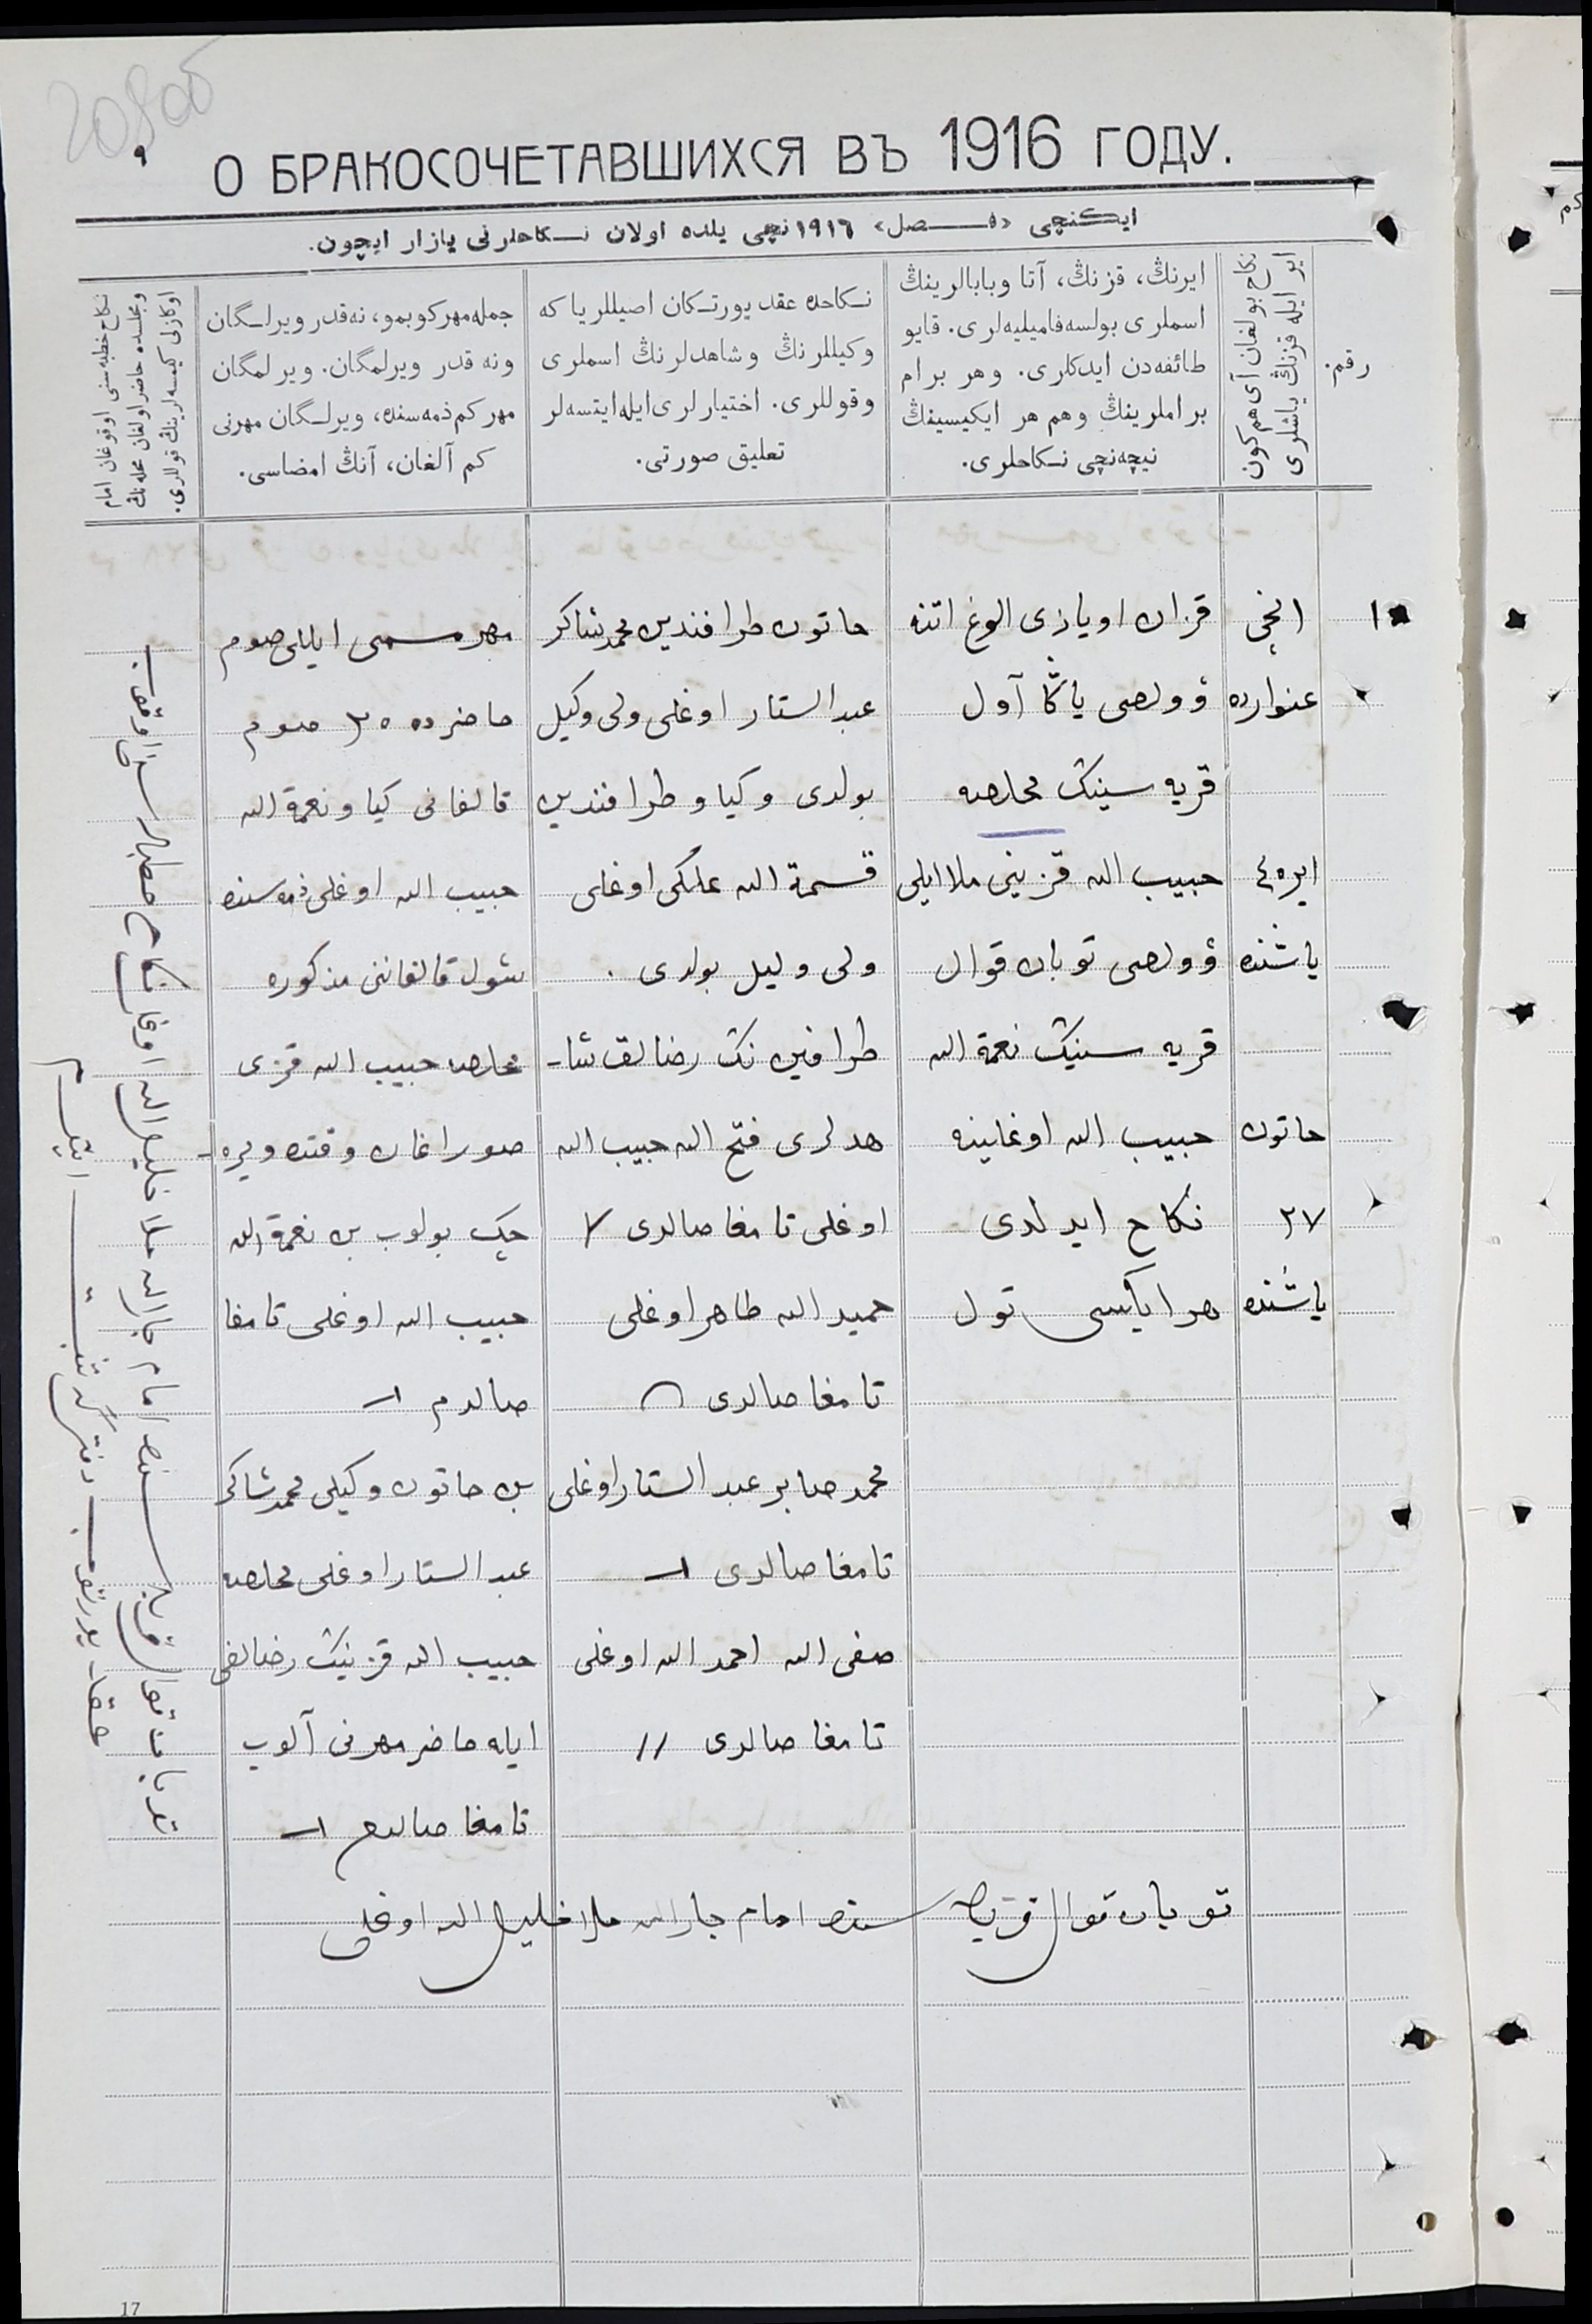 208об
О БРАКОСОЧЕТАВШИХСЯ ВЪ 1916 ГОДУ.
ایکنچی «فصل» ١٩١٦ نچی یلده اولان نکاحلرنی یازار ایچون.
رقم.
نکاح بولغان آی هم کون
ایر ایله قزنڭ یاشلری
ایرنڭ، قزنڭ، آتا وبابالرینڭ
اسملری بولسه فامیلیه‌لری. قایو
طائفه‌دن ایدکلری. وهر برام
براملرینڭ وهم هر ایکیسینڭ
نیچه‌نچی نکاحلری.
نکاحده عقد یورتکان اصیللریا که
وکیللرنڭ وشاهدلرنڭ اسملری
وقوللری. اختیارلری ایله ایتسه‌لر
تعلیق صورتی.
جمله مهر کوبمو، نه‌قدر ویرلگان
ونه قدر ویرلمگان. ویرلمگان
مهر کم ذمه‌سنده، ویرلگان مهرنی
کم آلغان، آنڭ امضاسی.
نکاح خطبه سنی اوقوغان امام
ومجلسده حاضر اولغان محله‌نڭ
اوکازلی کیمسه‌لرینڭ قوللری.
١
١ نچی
عنوارده
ایر ٥٤
یاشنده
حاتون
٢٧
یاشنده
قزان اویازی الوغ اتنه
ۋولصی یاڭا آول
قریه سینڭ مخلصه
حبیب الله قزینی ملا ایلی
ۋولصی توبان قوال
قریه سینڭ نعمة الله
حبیب الله اوغلینه
نکاح ایدلدی
هر ایکیسی تول
حاتون طرافندین محمدشاکر
عبدالستار اوغلی ولی وکیل
بولدی وکیاو طرافندین
قسمة الله علکی اوغلی
ولی وکیل بولدی .
طرافین نڭ رضالق شا-
هدلری فتح الله حبیب الله
اوغلی تامغا صالدی
حمید الله طاهر اوغلی
تامغا صالدی
محمد صابر عبدالستار اوغلی
تامغا صالدی
صفی الله احمد الله اوغلی
تامغا صالدی //
مهر مسمی ایللی صوم
حاضر ده ٢٥ صوم
قالغانی کیاو نعمة الله
حبیب الله اوغلی ذمه سنده
شول قالغاننی مذکوره
مخلصه حبیب الله قزی
صوراغان وقتده ویره-
جک بولوب بن نعمة الله
حبیب الله اوغلی تامغا
صالدم
بن حاتون وکیلی محمدشاکر
عبدالستار اوغلی مخلصه
حبیب الله قزینڭ رضالغی
ایله حاضر مهرنی آلوب
تامغا صالدم
توبان قوال قریه سنده امام جارالله ملا خلیل الله اوغلی
17